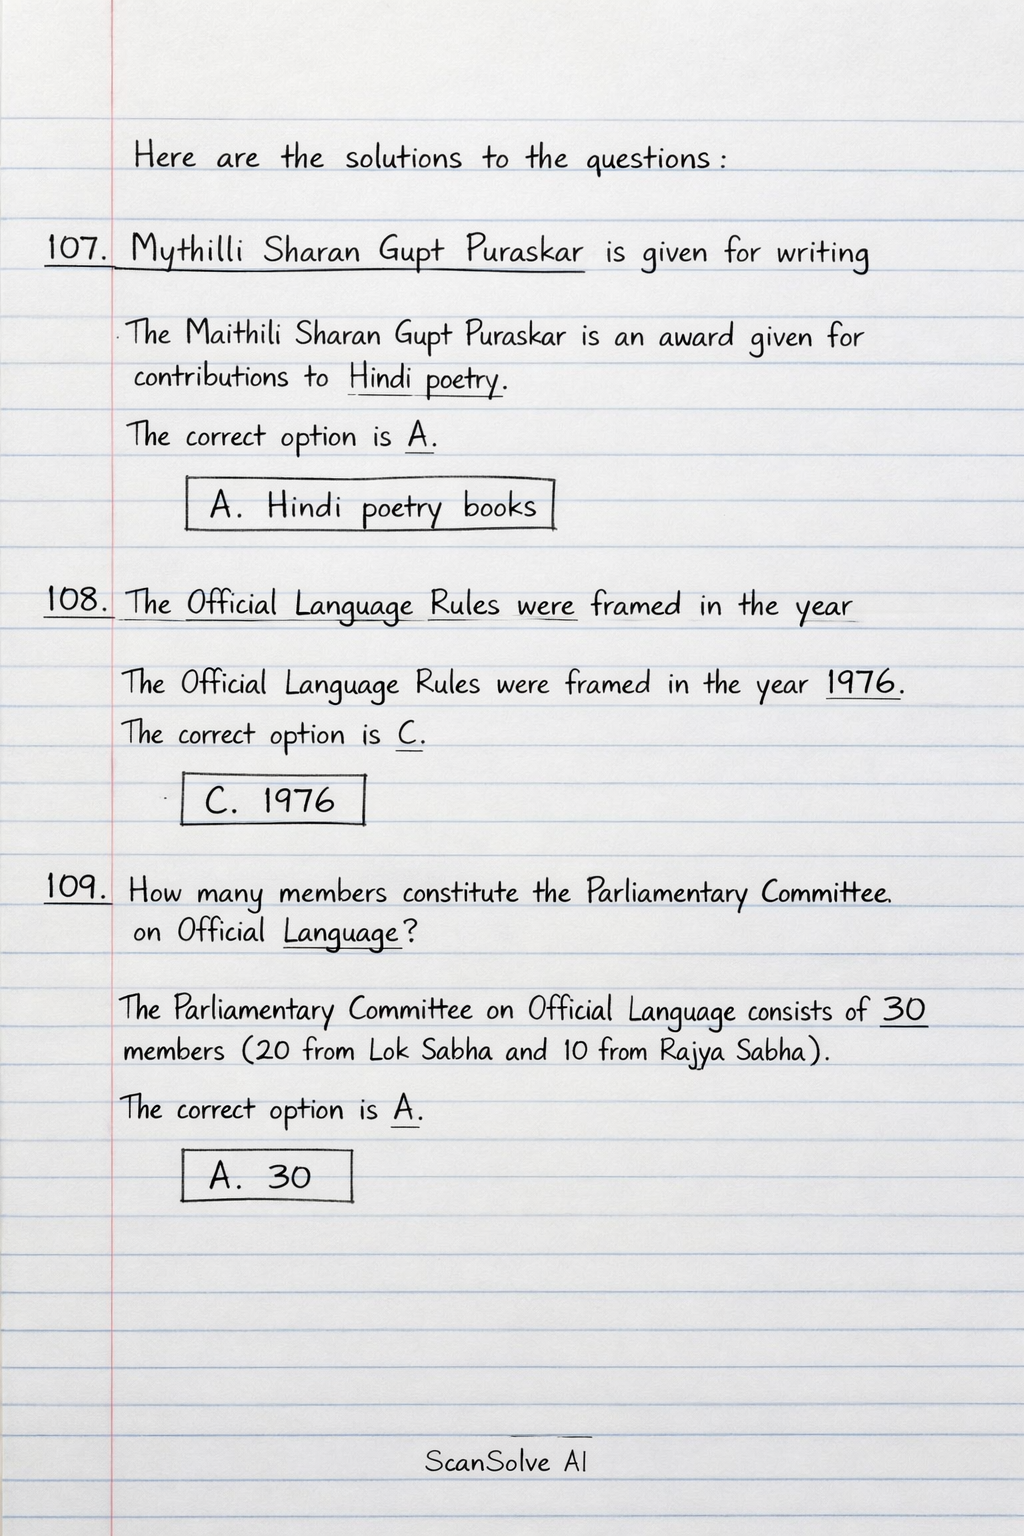 Here are the solutions to the questions:
107. Mythilli Sharan Gupt Puraskar is given for writing
The Maithili Sharan Gupt Puraskar is an award given for
contributions to Hindi poetry.
The correct option is A.
A. Hindi poetry books
108. The Official Language Rules were framed in the year
The Official Language Rules were framed in the year 1976.
The correct option is C.
C. 1976
109. How many members constitute the Parliamentary Committee
on Official Language?
The Parliamentary Committee on Official Language consists of 30
members (20 from Lok Sabha and 10 from Rajya Sabha).
The correct option is A.
A. 30
ScanSolve AI